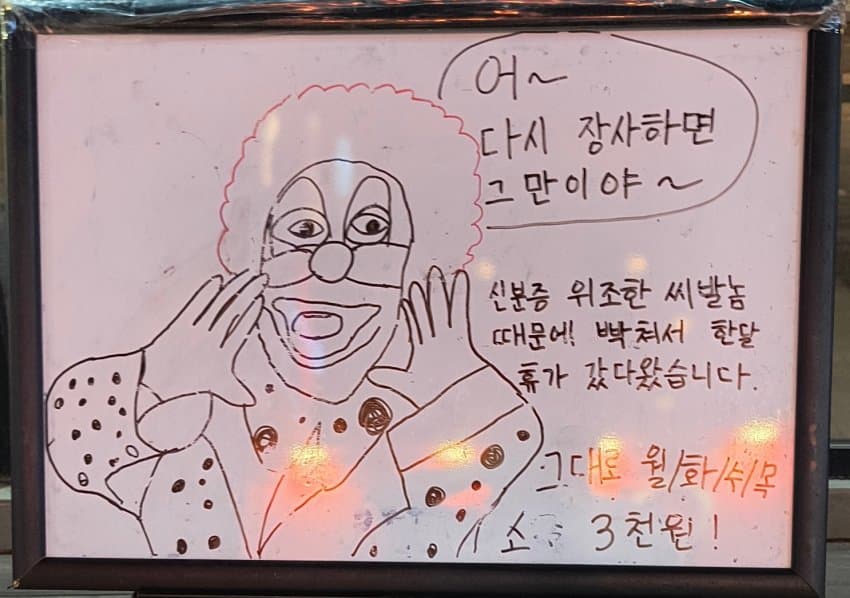 어~
다시 장사하면
그만이야~
신분증 위조한 씨발놈
때문에! 빡쳐서 한달
휴가 갔다왔습니다.
그대로 월/화/수/목
소 3천원!